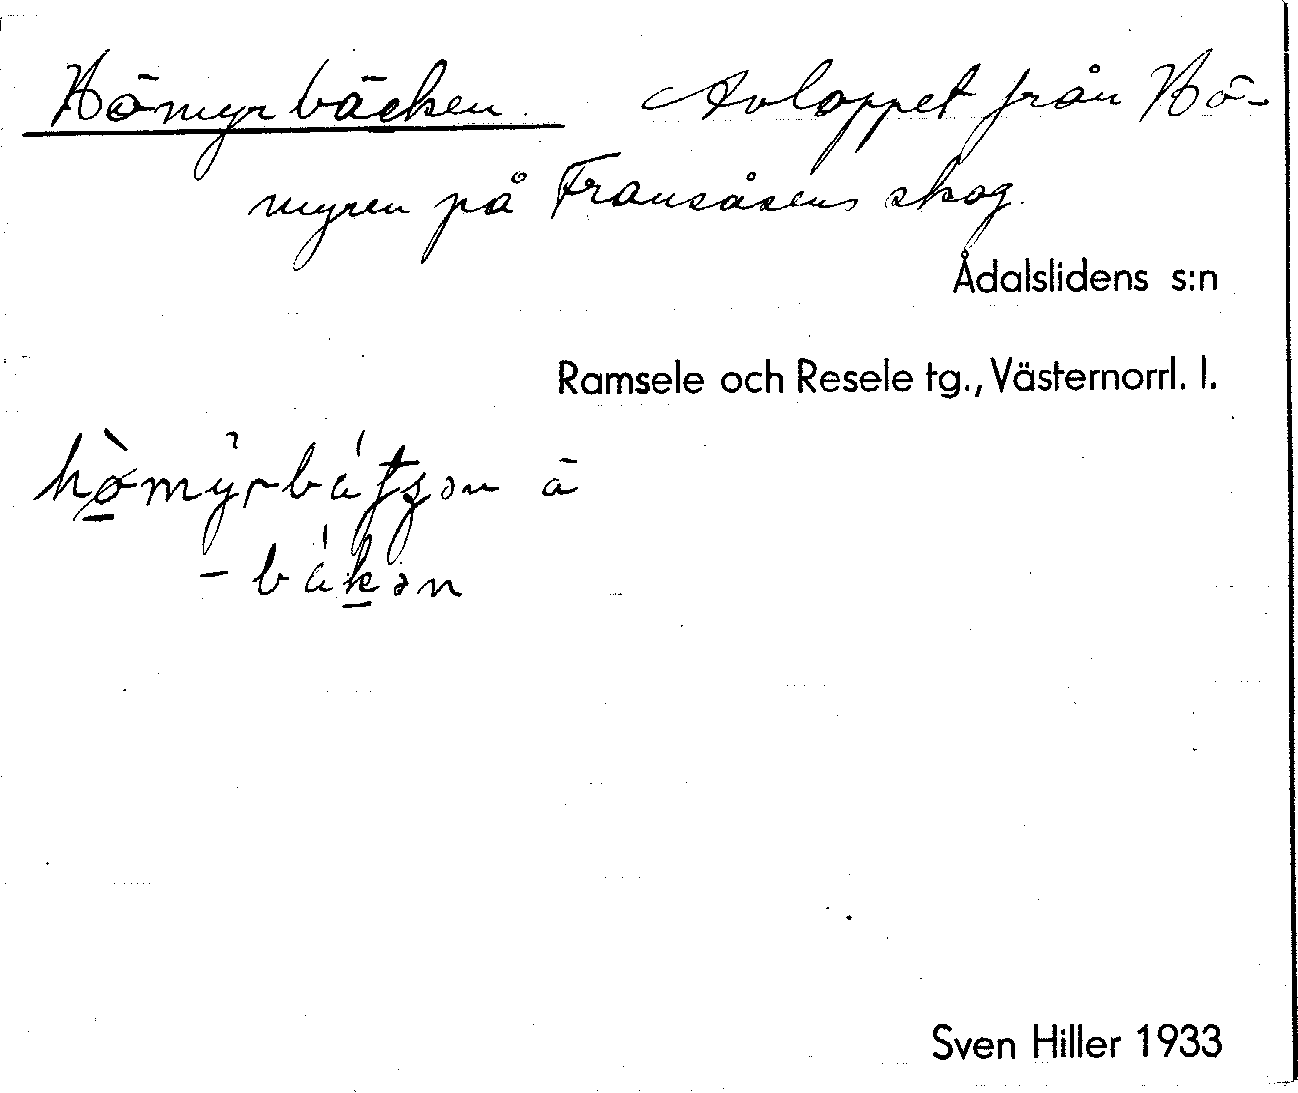 Hömyrbäcken. Avloppet från Hö-
myren på Fransåsens skog.
Ådalslidens s:n
Ramsele och Resele tg., Västernorrl. l.
-bákən
Sven Hiller 1933